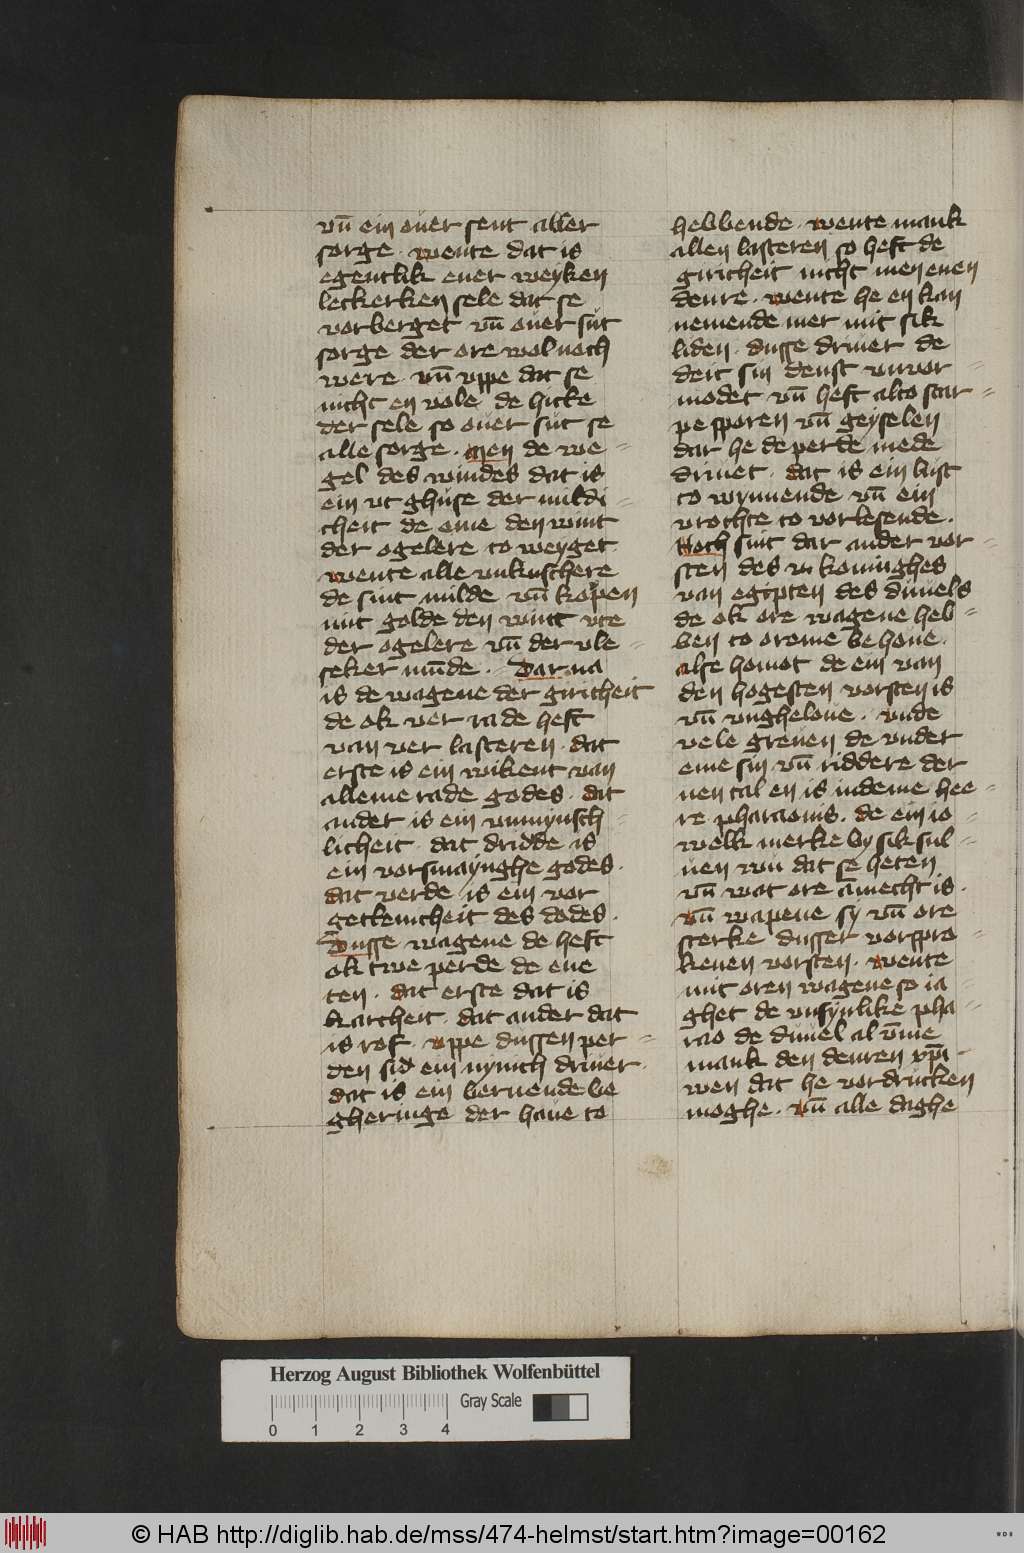 vn̄ ein ouer sent aller
sorge · wente dat is
egentlik ener weyken
leckerken sele dat se
vorberget vn̄ ouer sut
sorge der ore wol noch
were · vn̄ vppe dat se
nicht en vole de hicke
der sele so ouer sut se
alle sorge · men de we-
gel des windes dat is
ein vt ghuse der mildi-
cheit de eme den wint
der ogelere to weyget
wente alle vnkuschere
de sint milde vn̄ kopen
mit golde den wint vte
der ogelere vn̄ der vle-
seker mūde · Dar na
is de wagene der giricheit
de ok ver rade heft
van ver lasteren · dat
erste is ein wikent van
alleme rade godes · dat
ander is ein vnmynsch-
licheit · dat dridde is
ein vorsmaynghe godes ·
dat verde is ein vor
getlenicheit des dodes ·
Dusse wagene de heft
ok twe perde de ene
ten · dat erste dat is
karcheit · dat ander dat
is rof · vppe dussen per-
den sid ein mynsch driuer ·
dat is ein bernende be
gheringe der haue to
hebbende · wente mank
allen lasteren so heft de
giricheit nicht men enen
denre · wente he en kan
nemende mer mit sik
liden · dusse driuer de
deit sin denst vnvor-
modet vn̄ heft alto scar-
pe sporen vn̄ geyselen
dar he de perde mede
driuet · dat is ein lust
to wynnende vn̄ ein
vrochte to vorlesende ·
Noch sint dar ander vor-
sten des vn koninghes
van egipten des duuels
de ok ore wagene heb-
ben to oreme behoue ·
alse homot de ein van
den hogesten vorsten is
vn̄ vngheloue · vnde
vele greuen de vnder
eme sin vn̄ riddere der
nen tal en is indeme hee-
re pharaonis · de ein io-
welk merke by sik sul-
uen wu dat se heten
vn̄ wat ore āmecht is ·
vn̄ wapene sy vn̄ ore
sterke dusser vorspro-
kenen vorsten · wente
mit oren wagene so ia-
ghet de vnsynlike pha-
rao de duuel al vm̄e
mank den denren xp̄i
wen dat he vordrucken
moghe · vn̄ alle daghe
Herzog August Bibliothek Wolfenbüttel
Gray Scale
0 1 2 3 4
© HAB http://diglib.hab.de/mss/474-helmst/start.htm?image=00162
WDB